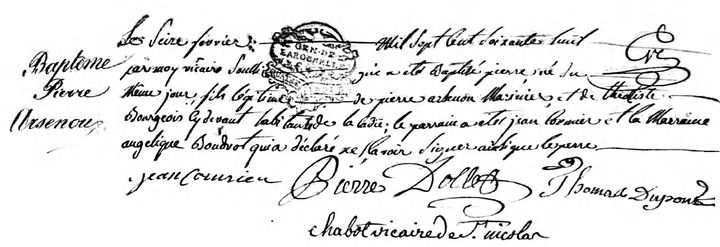 Baptême
Pierre
Arsenoux
Les Seize février Mil Sept Cent Soixante huit
GEN. DE LA ROCHELLE
par moy vicaire Soussi qui a eté Baptisé pierre né du
Même jour fils légitime de pierre arsenou Marinier et de theotiste
Bourgeois cydevant habitants de Lacadie; le parrain a eté jean cormier et la Marraine
angelique Boudrot qui a déclaré ne sçavoir Signer ainsi que le pere
jean Cormier Pierre Dollet Thomas Dupont
chabot vicaire de St. nicolas